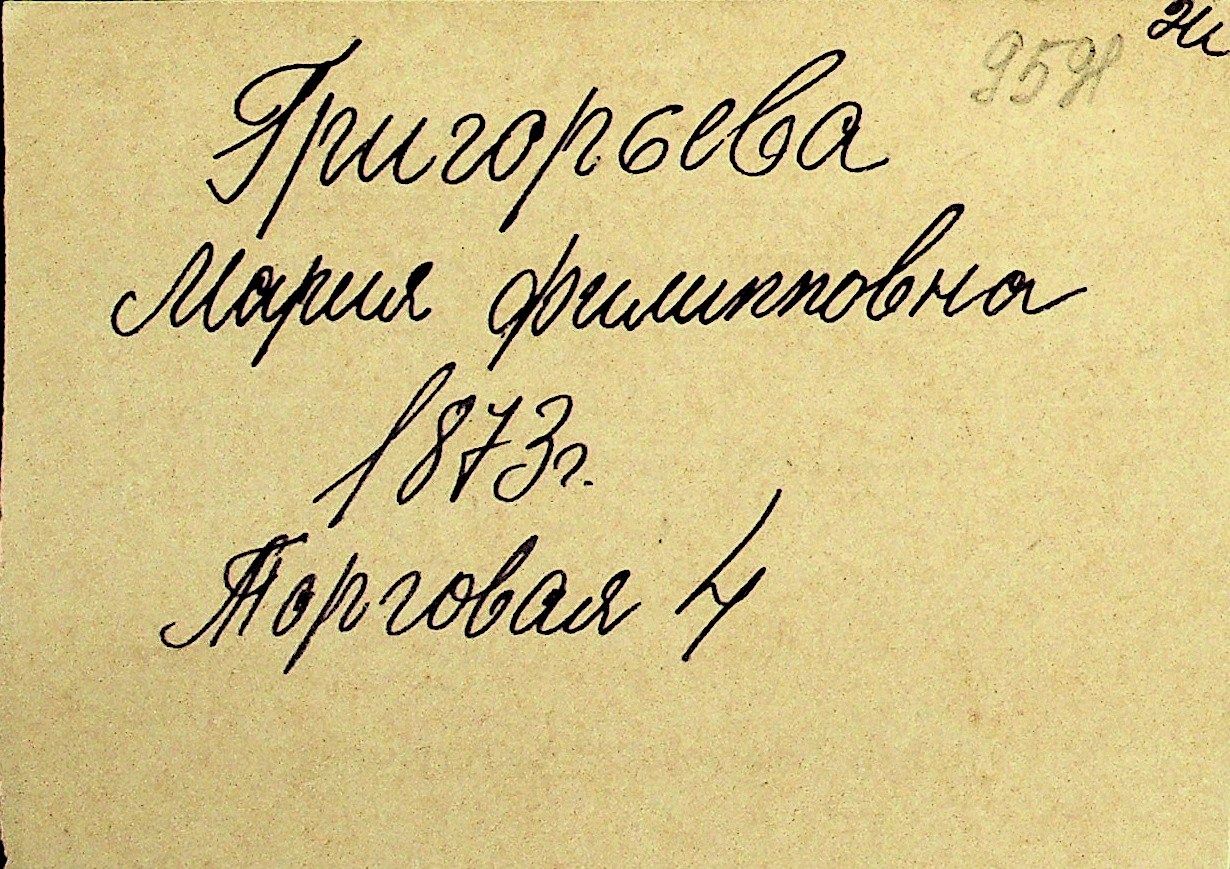 Григорьева
Мария Филипповна
1873 г.
Торговая 4